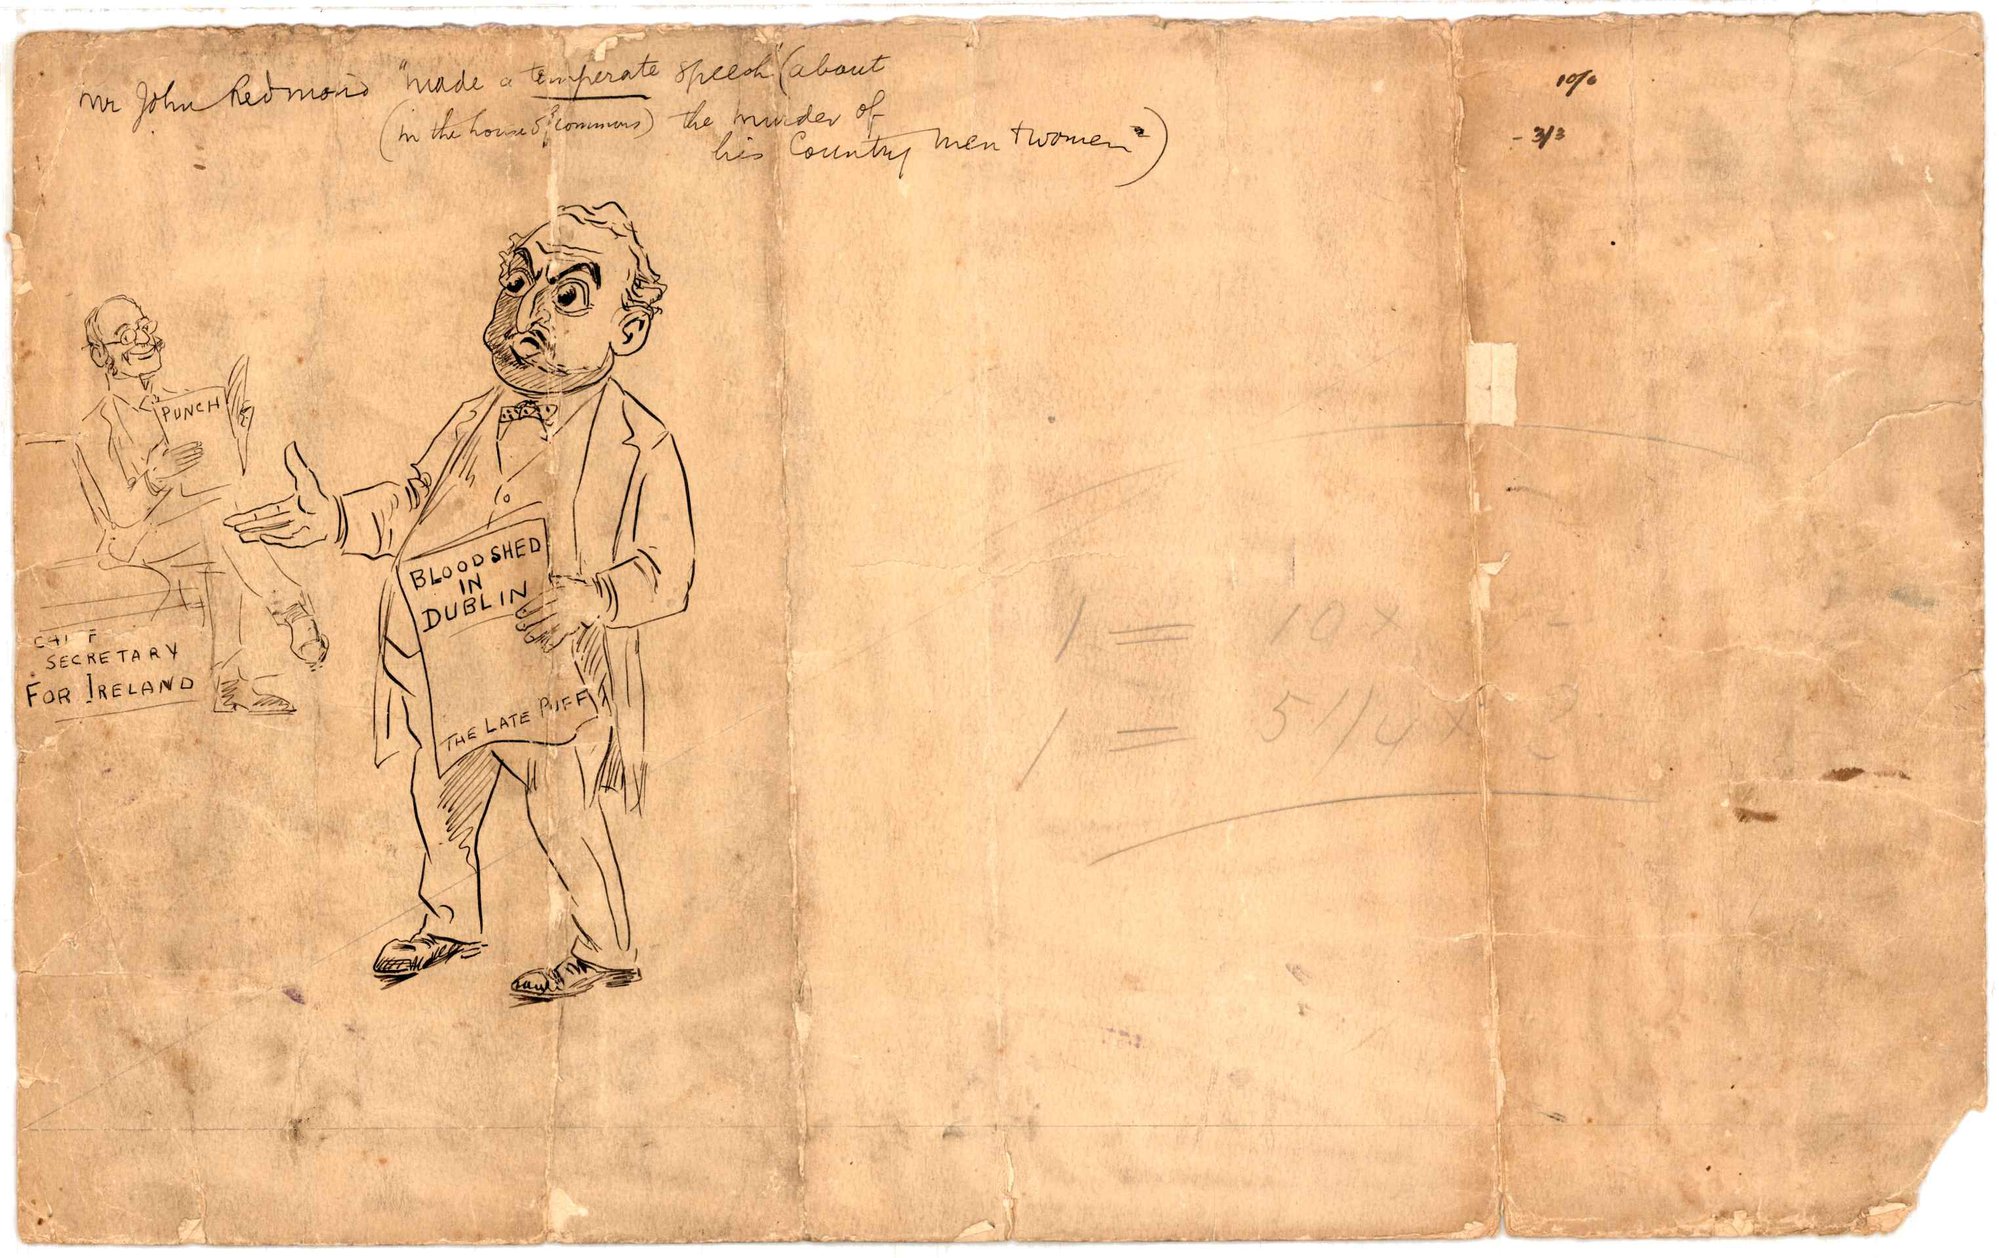 Mr John Redmond "made a temperate speech" (about
(in the house of commons) the murder of
his Country men + women")
10/6
- 3/3
PUNCH
BLOODSHED
IN
DUBLIN
THE LATE PUFF
CHIEF
SECRETARY
FOR IRELAND
1 = 10 x
1 = 5 1/4 x